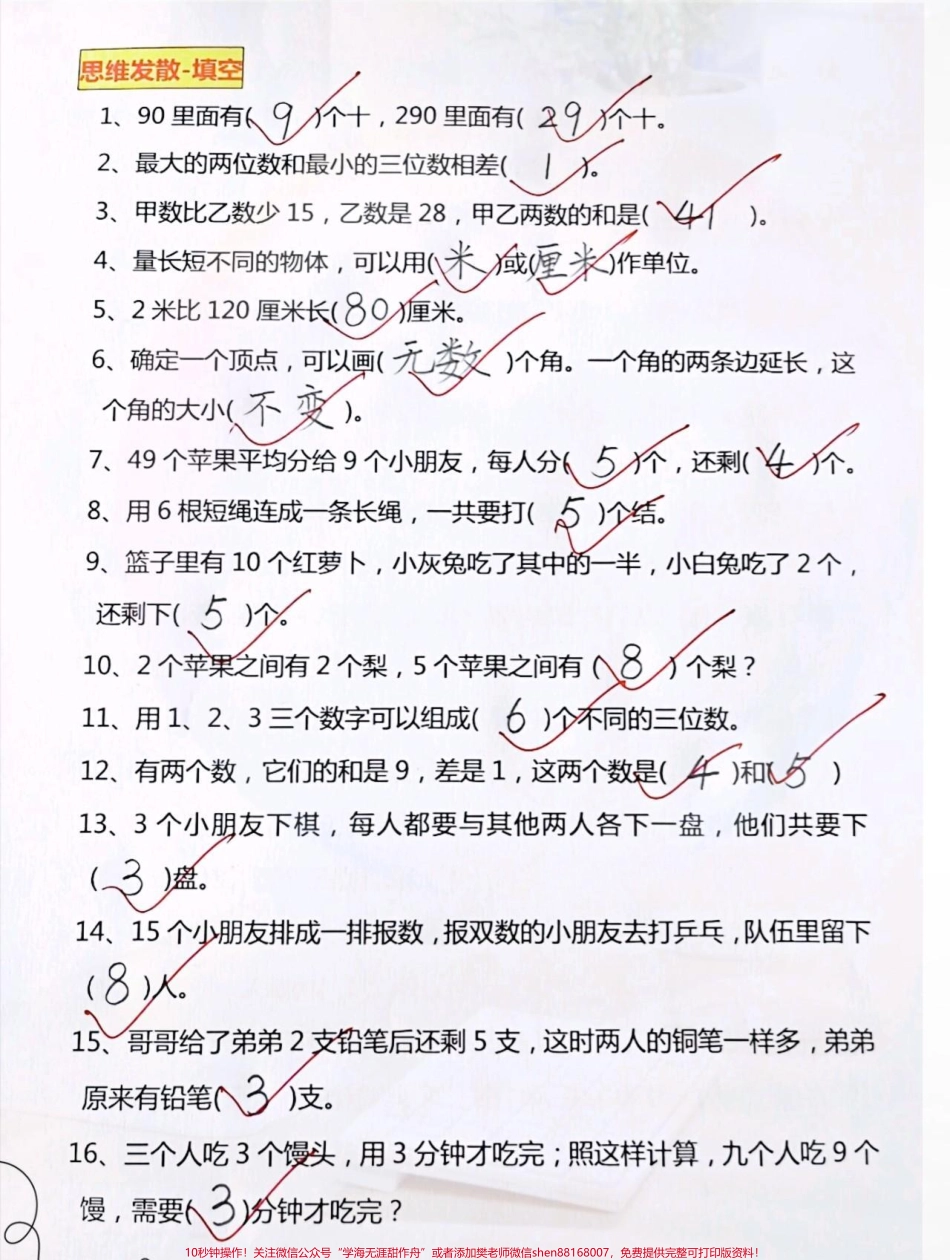 思维发散-填空
1、90 里面有( 9 )个十，290 里面有( 29 )个十。
2、最大的两位数和最小的三位数相差( 1 )。
3、甲数比乙数少 15，乙数是 28，甲乙两数的和是( 41 )。
4、量长短不同的物体，可以用( 米 )或(厘米)作单位。
5、2 米比 120 厘米长(80)厘米。
6、确定一个顶点，可以画( 无数 )个角。一个角的两条边延长，这
个角的大小( 不变 )。
7、49 个苹果平均分给 9 个小朋友，每人分( 5 )个，还剩( 4 )个。
8、用 6 根短绳连成一条长绳，一共要打( 5 )个结。
9、篮子里有 10 个红萝卜，小灰兔吃了其中的一半，小白兔吃了 2 个，
还剩下( 5 )个。
10、2 个苹果之间有 2 个梨，5 个苹果之间有 ( 8 ) 个梨？
11、用 1、2、3 三个数字可以组成( 6 )个不同的三位数。
12、有两个数，它们的和是 9，差是 1，这两个数是( 4 )和( 5 )
13、3 个小朋友下棋，每人都要与其他两人各下一盘，他们共要下
( 3 )盘。
14、15 个小朋友排成一排报数，报双数的小朋友去打乒乓，队伍里留下
( 8 )人。
15、哥哥给了弟弟 2 支铅笔后还剩 5 支，这时两人的铜笔一样多，弟弟
原来有铅笔( 3 )支。
16、三个人吃 3 个馒头，用 3 分钟才吃完；照这样计算，九个人吃 9 个
馒，需要( 3 )分钟才吃完？
10秒钟操作！关注微信公众号“学海无涯甜作舟”或者添加樊老师微信shen88168007，免费提供完整可打印版资料！